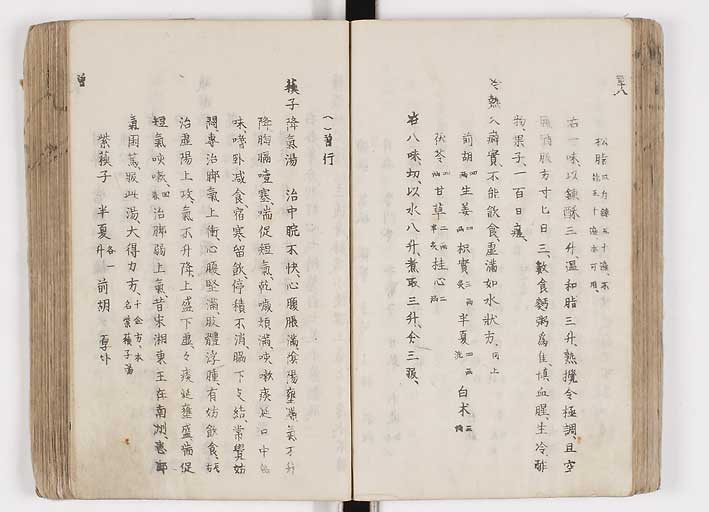 松脂
右一味以鍊酥三升溫和脂三升熟攪令極調且空
腹酒服方寸匕日三數食麵粥為佳慎血腥生冷酢
物果子一百日瘥
冷熱久癖實不能飲食虛滿如水狀方
前胡 生姜 枳實 半夏 白朮
茯苓 甘草 桂心
右八味切以水八升煮取三升分三服
(一)首行
蘇子降氣湯 治中脘不快心腹脹滿陰陽壅滯氣不升
降胸膈噎塞喘促短氣乾噦煩滿咳嗽痰涎口中
味嗜卧減食宿寒留飲停積不消脇下支結常覺妨
悶專治脚氣上衝心腹堅滿肢體浮腫有妨飲食
治虛陽上攻氣不升降上盛下虛痰涎壅盛喘促
短氣咳嗽 治脚弱上氣昔宋湘東王在南州患脚
氣困篤服此湯大得力方
紫蘇子 半夏 各一升 前胡